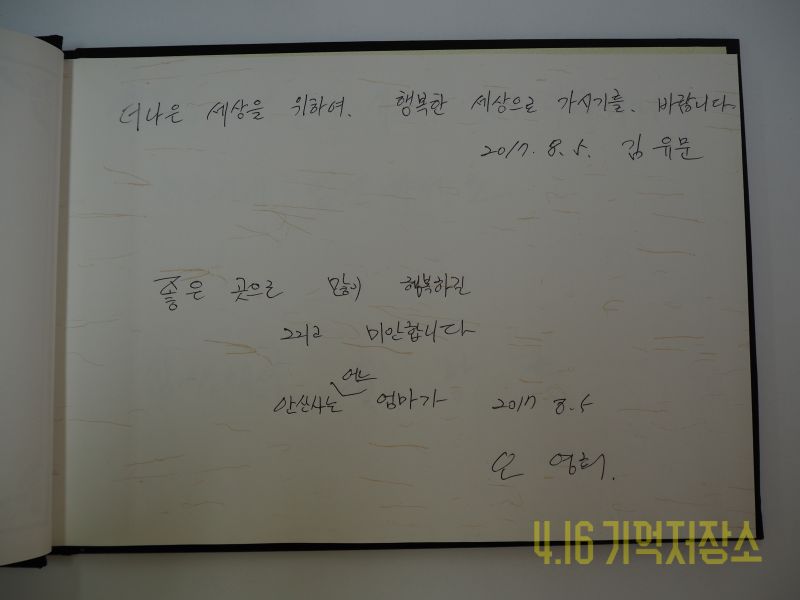 더나은 세상을 위하여. 행복한 세상으로 가시기를. 바랍니다
2017. 8. 5. 김유문
좋은 곳으로 많이 행복하길
그리고 미안합니다
안산사는 어느 엄마가 2017 8.5
오영희.
4.16 기억저장소